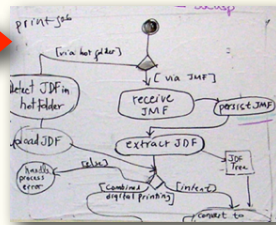 print job
[via hot folder]
[via JMF]
detect JDF in
hot folder
receive
JMF
persist JMF
upload JDF
extract JDF
JDF
Tree
[else]
handle
process
error
[Combined
digital printing]
[intent]
convert to